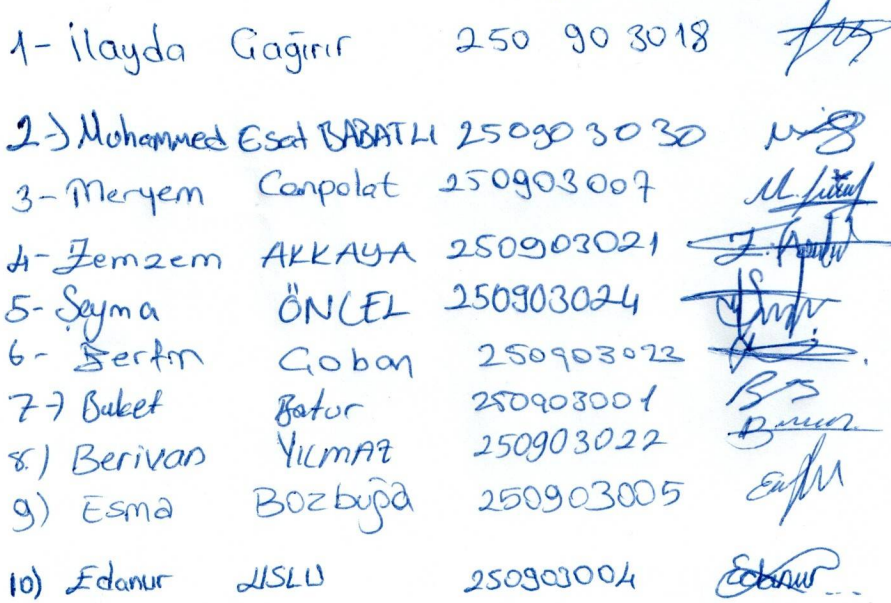 1- İlayda Çağırır 250 90 3018
2-) Muhammed Esat BABATLI 250903030
3- Meryem Canpolat 250903007
4- Zemzem AKKAYA 250903021
5- Şeyma ÖNCEL 250903024
6- Çoban 250903023
7-) Buket Batur 250903001
8.) Berivan YILMAZ 250903022
9) Esma Bozbuğa 250903005
10) Edanur USLU 250903004 Edanur